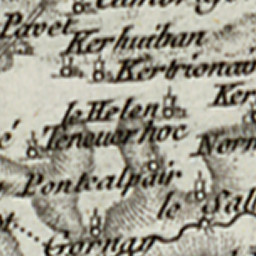 Pavet
Kerhuiban
Kertrionair
Ker
le Helen
Teneuerhoc
Norm
Pontcalpair
le Sall
Gornan